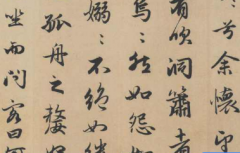 兮余懷望
有吹洞簫者
嗚〻然如怨
嫋〻不絕如縷
孤舟之嫠
坐而問客曰何